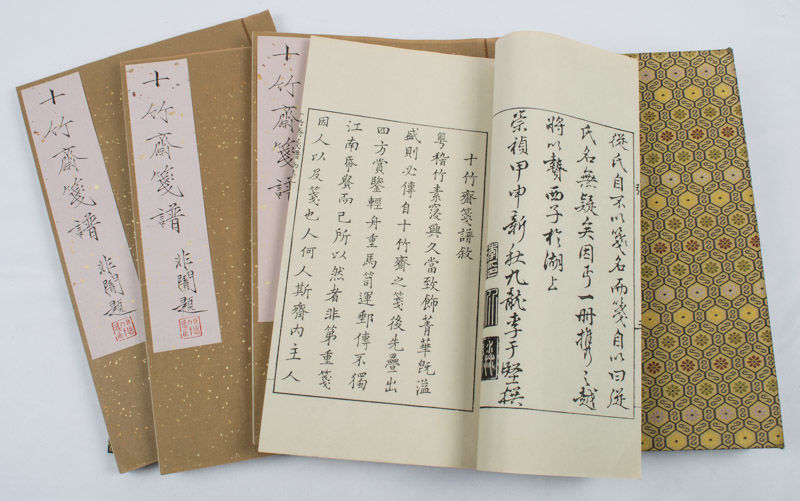 十竹齋箋譜
非闇題
十竹齋箋譜
非闇題
十竹齋箋
從氏自不以箋名而箋自以曰從
氏名無疑矣因一冊攜之越
將以西子於湖上
崇禎甲申新秋九龍李于堅撰
十竹齋箋譜敘
粵稽竹素寖興久當致飾菁華既溢
盛則必傳自十竹齋之箋後先疊出
四方賞鑒輕舟重馬笥運郵傳不獨
江南貴而已所以然者非第重箋
因人以及箋也人何人斯齋內主人